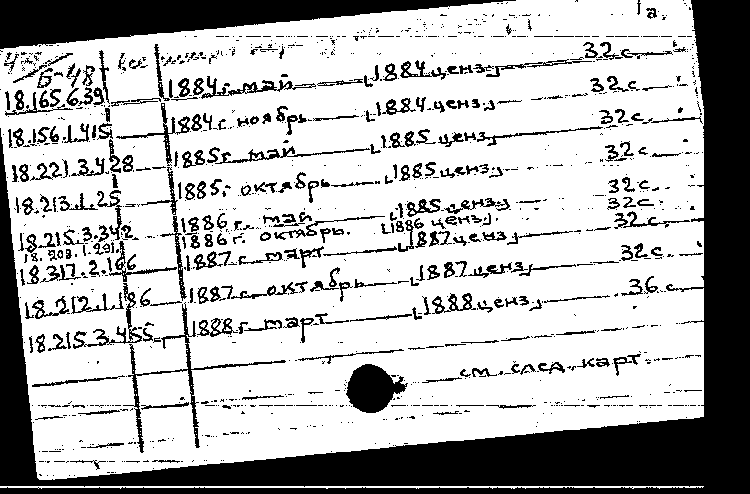 1а.
Б-48 все
18.165.6.39 1884 г. май [1884 ценз.] 32 с.
18.156.1.415 1884 г. ноябрь [1884 ценз.] 32 с.
18.221.3.428 1885 г. май [1885 ценз.] 32 с.
18.213.1.25 1885 г. октябрь [1885 ценз.] 32 с.
18.215.3.342 1886 г. май [1885 ценз.] 32 с.
18.208.1.291. 1886 г. октябрь. [1886 ценз.] 32 с.
18.317.2.166 1887 г. март [1887 ценз.] 32 с.
18.212.1.186 1887 г. октябрь [1887 ценз.] 32 с.
18.215.3.455 1888 г. март [1888 ценз.] 36 с.
см. след. карт.